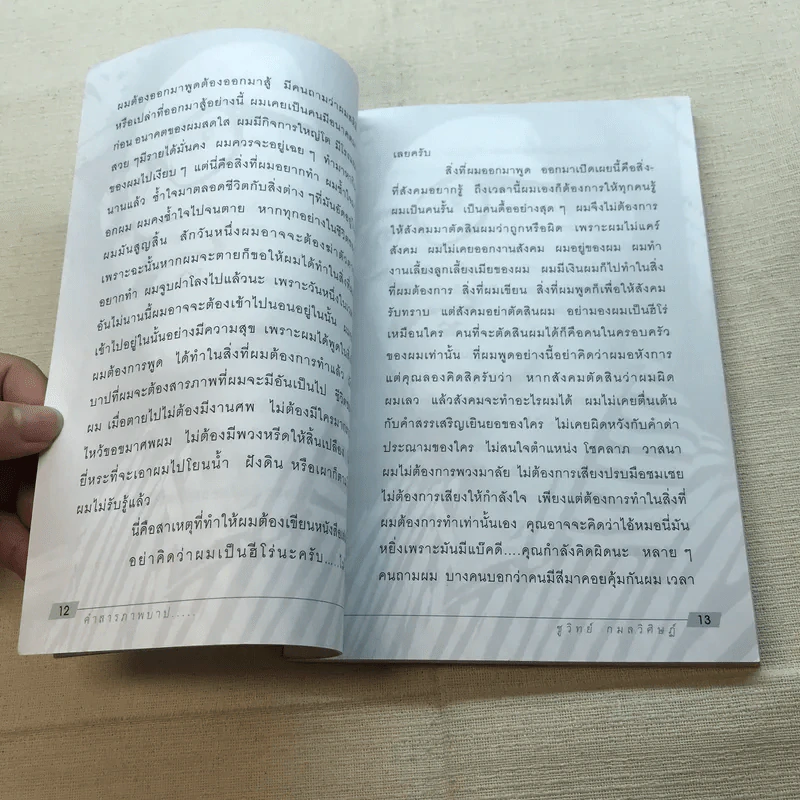 ผมต้องออกมาพูดต้องออกมาสู้ มีคนถามว่าผม
หรือเปล่าที่ออกมาสู้อย่างนี้ ผมเคยเป็นคนมีอนาคต
ก่อน อนาคตของผมสดใส ผมมีกิจการใหญ่โต
สวย ๆ มีรายได้มั่นคง ผมควรจะอยู่เฉย ๆ
ของผมไปเงียบ ๆ แต่นี่คือสิ่งที่ผมอยากทำ
นานแล้ว ช้ำใจมาตลอดชีวิตกับสิ่งต่าง ๆ ที่มัน
อกผม ผมคงช้ำใจไปจนตาย หากทุกอย่างใน
ผมมันสูญสิ้น สักวันหนึ่งผมอาจจะต้องฆ่า
เพราะฉะนั้นหากผมจะตายก็ขอให้ผมได้ทำใน
อยากทำ ผมจูบฝาโลงไปแล้วนะ เพราะวันหนึ่ง
อันไม่นานนี้ผมอาจจะต้องเข้าไปนอนอยู่ในนั้น
เข้าไปอยู่ในนั้นอย่างมีความสุข เพราะผมได้พูด
ผมต้องการพูด ได้ทำในสิ่งที่ผมต้องการทำแล้ว
บาปที่ผมจะต้องสารภาพที่ผมจะมีอันเป็นไป
ผม เมื่อตายไปไม่ต้องมีงานศพ ไม่ต้องมีใคร
ไหว้ขอขมาศพผม ไม่ต้องมีพวงหรีดให้สิ้นเปลือง
ยี่หระที่จะเอาผมไปโยนน้ำ ฝังดิน หรือเผาก็
ผมไม่รับรู้แล้ว
นี่คือสาเหตุที่ทำให้ผมต้องเขียน
อย่าคิดว่าผมเป็นฮีโร่นะครับ.....
12 คำสารภาพบาป.....
เลยครับ
สิ่งที่ผมออกมาพูด ออกมาเปิดเผยนี้คือสิ่ง-
ที่สังคมอยากรู้ ถึงเวลานี้ผมเองก็ต้องการให้ทุกคนรู้
ผมเป็นคนรั้น เป็นคนดื้ออย่างสุด ๆ ผมจึงไม่ต้องการ
ให้สังคมมาตัดสินผมว่าถูกหรือผิด เพราะผมไม่แคร์
สังคม ผมไม่เคยออกงานสังคม ผมอยู่ของผม ผมทำ
งานเลี้ยงลูกเลี้ยงเมียของผม ผมมีเงินผมก็ไปทำในสิ่ง
ที่ผมต้องการ สิ่งที่ผมเขียน สิ่งที่ผมพูดก็เพื่อให้สังคม
รับทราบ แต่สังคมอย่าตัดสินผม อย่ามองผมเป็นฮีโร่
เหมือนใคร คนที่จะตัดสินผมได้ก็คือคนในครอบครัว
ของผมเท่านั้น ที่ผมพูดอย่างนี้อย่าคิดว่าผมอหังการ
แต่คุณลองคิดสิครับว่า หากสังคมตัดสินว่าผมผิด
ผมเลว แล้วสังคมจะทำอะไรผมได้ ผมไม่เคยตื่นเต้น
กับคำสรรเสริญเยินยอของใคร ไม่เคยผิดหวังกับคำด่า
ประณามของใคร ไม่สนใจตำแหน่ง โชคลาภ วาสนา
ผมไม่ต้องการพวงมาลัย ไม่ต้องการเสียงปรบมือชมเชย
ไม่ต้องการเสียงให้กำลังใจ เพียงแต่ต้องการทำในสิ่งที่
ผมต้องการทำเท่านั้นเอง คุณอาจจะคิดว่าไอ้หมอนี่มัน
หยิ่งเพราะมันมีแบ็คดี....คุณกำลังคิดผิดนะ หลาย ๆ
คนถามผม บางคนบอกว่าคนมีสีมาคอยคุ้มกันผม เวลา
ชูวิทย์ กมลวิศิษฎ์ 13